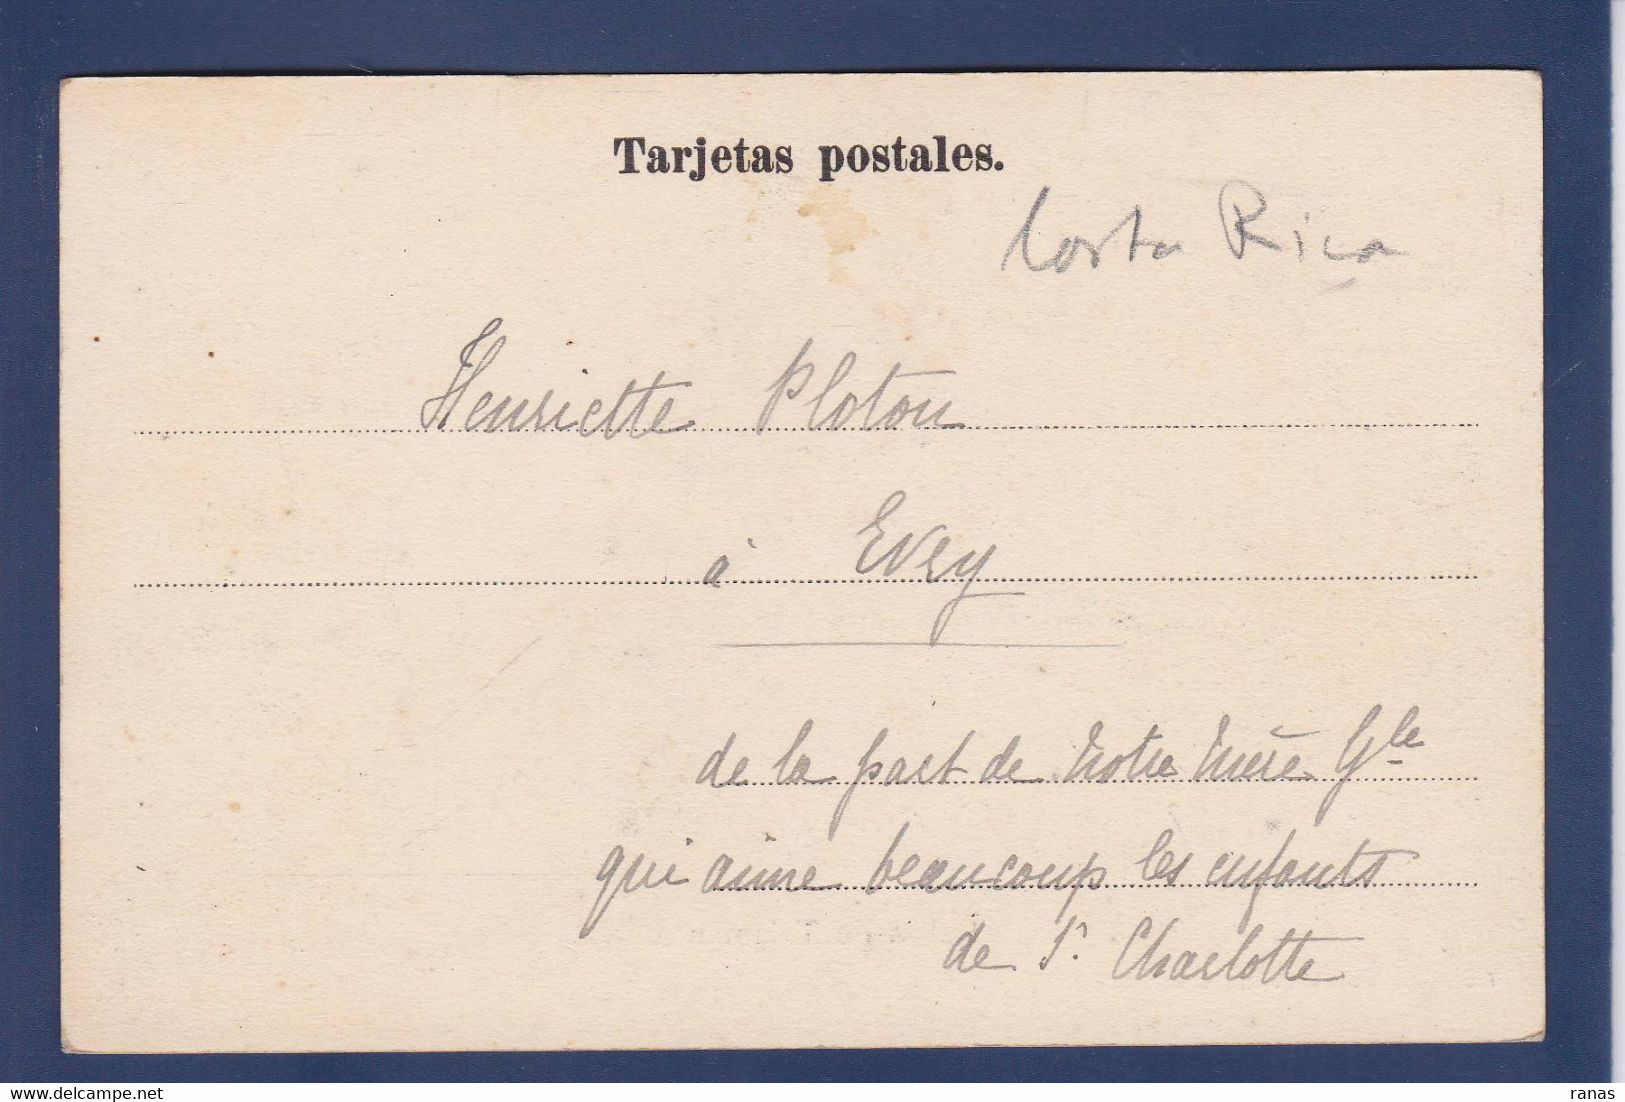 Tarjetas postales.
Costa Rica
Henriette Ploton
à Evry
de la part de Notre Mère Gle
qui aime beaucoup les enfants
de Sr. Charlotte
delcampe.net
ranas